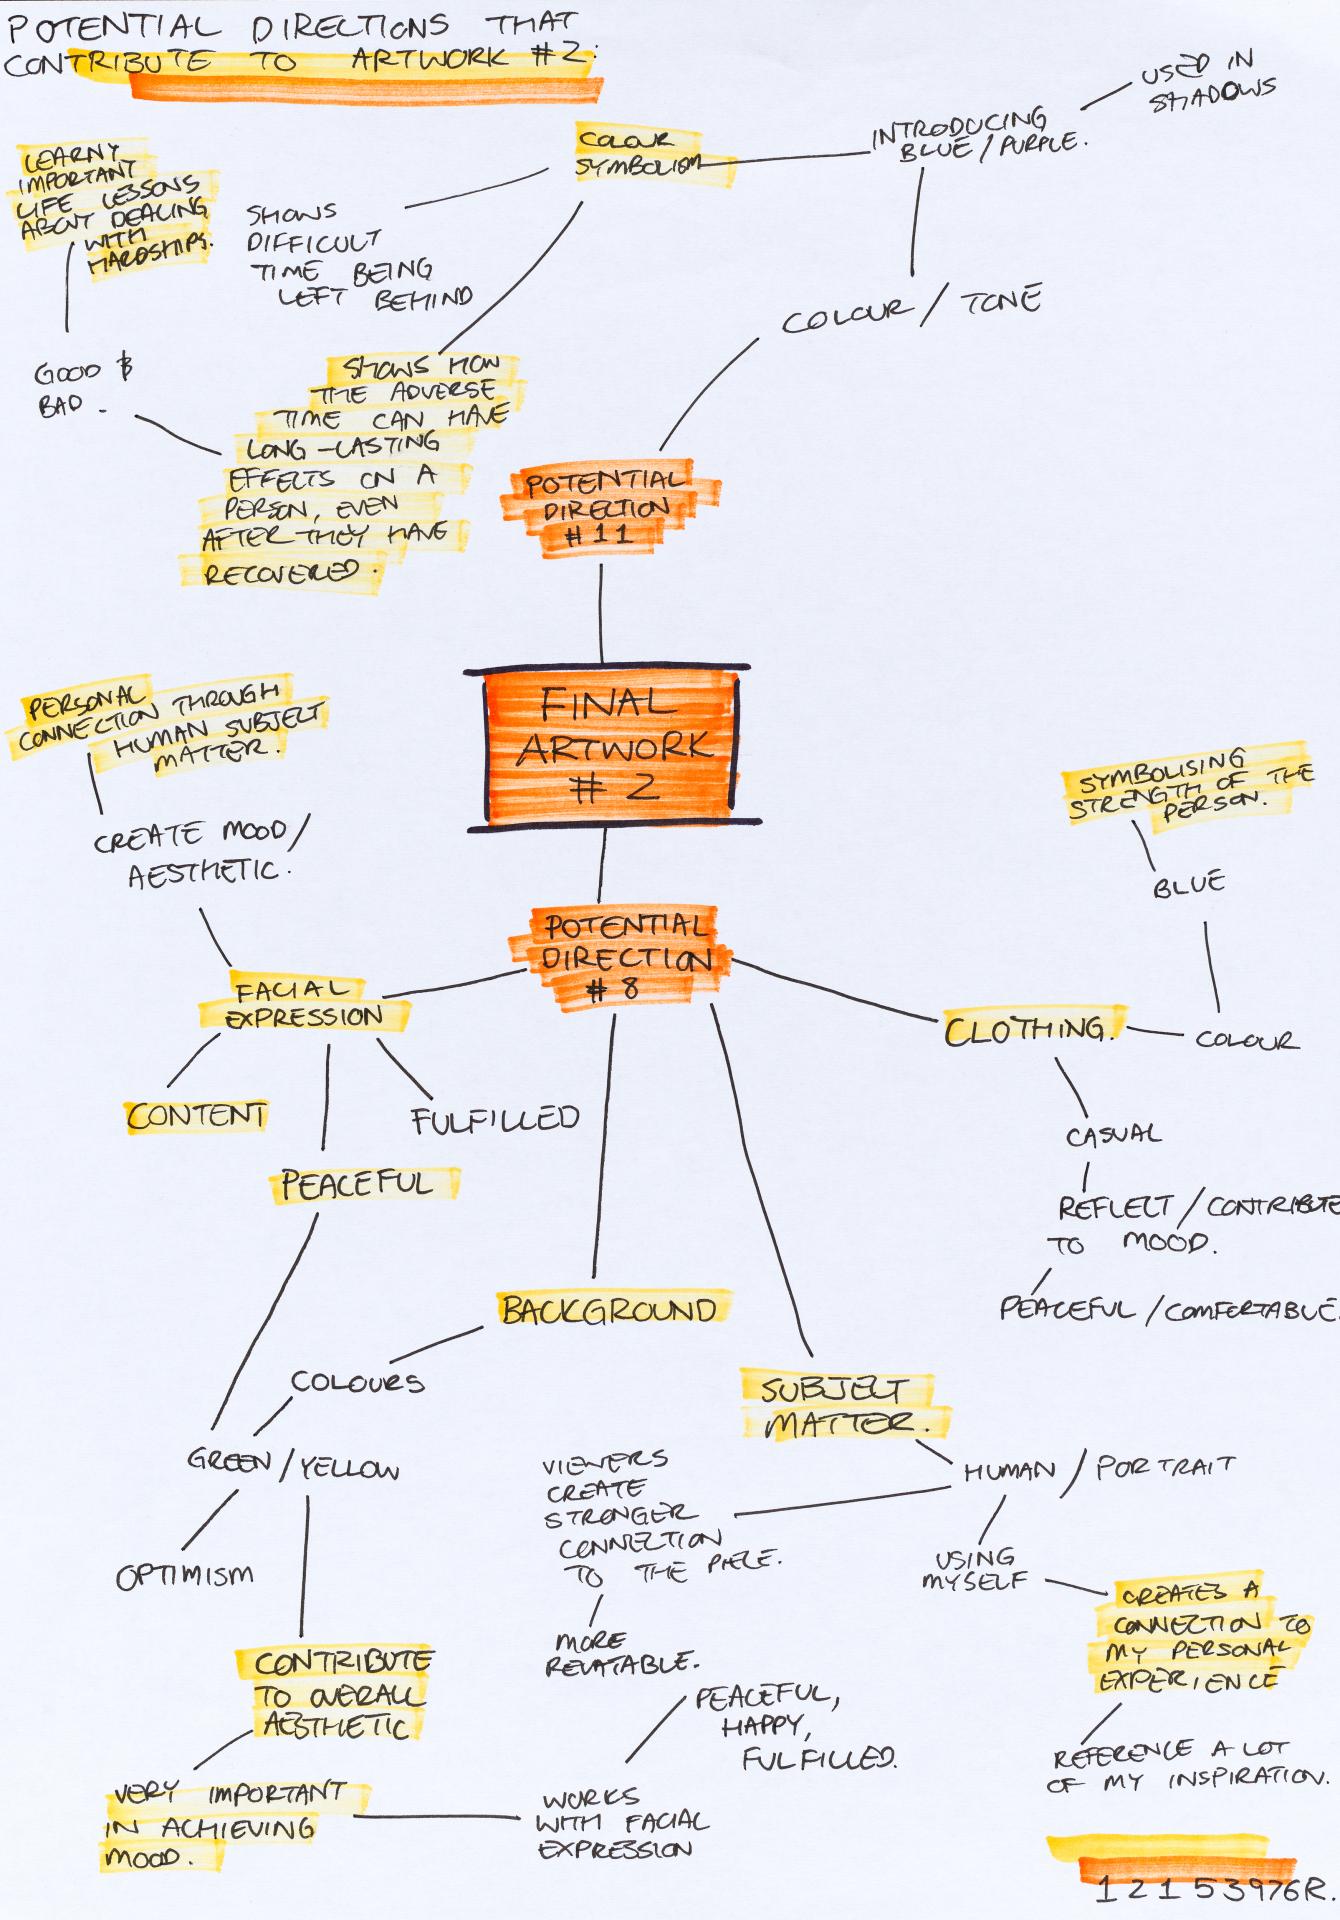 POTENTIAL DIRECTIONS THAT
CONTRIBUTE TO ARTWORK #2.
USED IN
SHADOWS
INTRODUCING
BLUE / PURPLE.
COLOUR
SYMBOLISM
LEARNY
IMPORTANT
LIFE LESSONS
ABOUT DEALING
WITH
HARDSHIPS.
SHOWS
DIFFICULT
TIME BEING
LEFT BEHIND
COLOUR / TONE
GOOD &
BAD.
SHOWS HOW
THE ADVERSE
TIME CAN HAVE
LONG-LASTING
EFFECTS ON A
PERSON, EVEN
AFTER THEY HAVE
RECOVERED.
POTENTIAL
DIRECTION
#11
FINAL
ARTWORK
#2
PERSONAL
CONNECTION THROUGH
HUMAN SUBJECT
MATTER.
CREATE MOOD /
AESTHETIC.
SYMBOLISING
STRENGTH OF THE
PERSON.
BLUE
POTENTIAL
DIRECTION
#8
FACIAL
EXPRESSION
CLOTHING.
COLOUR
CONTENT
FULFILLED
PEACEFUL
CASUAL
REFLECT / CONTRIBUTE
TO MOOD.
PEACEFUL / COMFORTABLE.
BACKGROUND
COLOURS
SUBJECT
MATTER.
GREEN / YELLOW
VIEWERS
CREATE
STRONGER
CONNECTION
TO THE PIECE.
HUMAN / PORTRAIT
OPTIMISM
USING
MYSELF
CREATES A
CONNECTION TO
MY PERSONAL
EXPERIENCE
MORE
RELATABLE.
CONTRIBUTE
TO OVERALL
AESTHETIC
PEACEFUL,
HAPPY,
FULFILLED.
REFERENCE A LOT
OF MY INSPIRATION.
VERY IMPORTANT
IN ACHIEVING
MOOD.
WORKS
WITH FACIAL
EXPRESSION
12153976R.